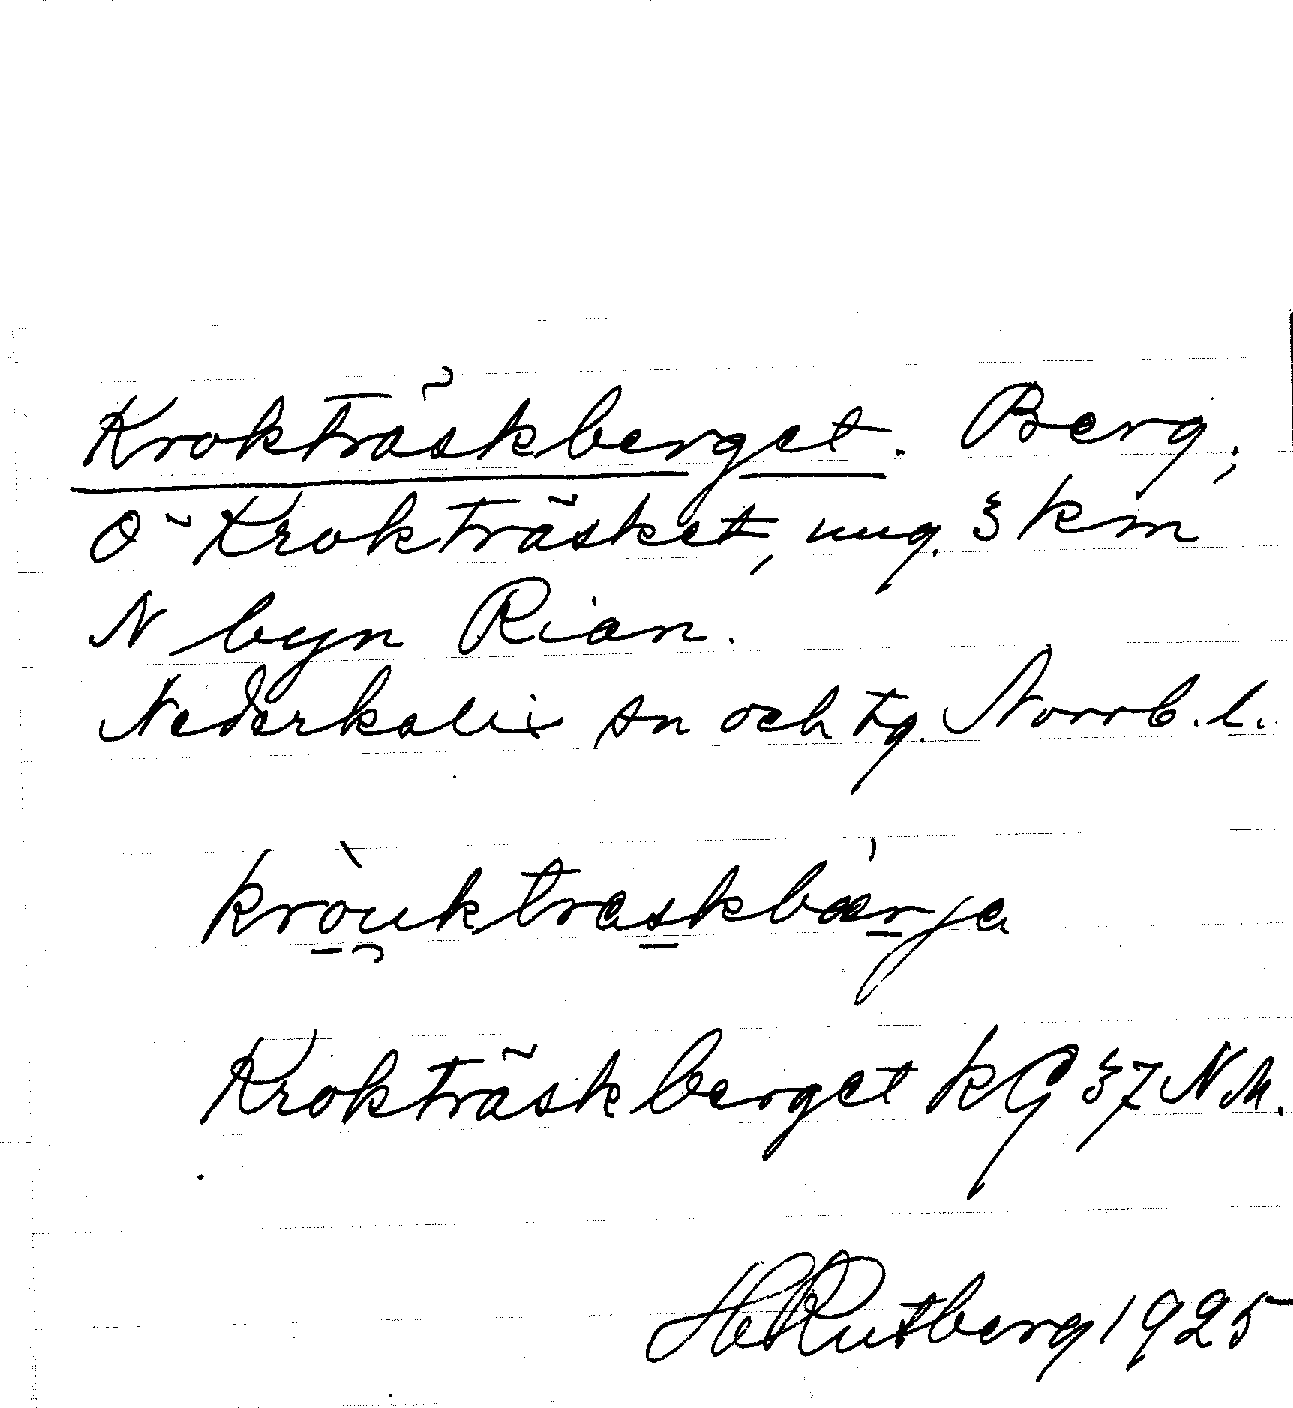 Krokträskberget. Berg,
Ö Krokträsket, ung. 3 km
N byn Rian.
Nederkalix sn och tg. Norrb. l.
kròuktraskbærja
Krokträskberget kG 37 NM.
H Rutberg 1925